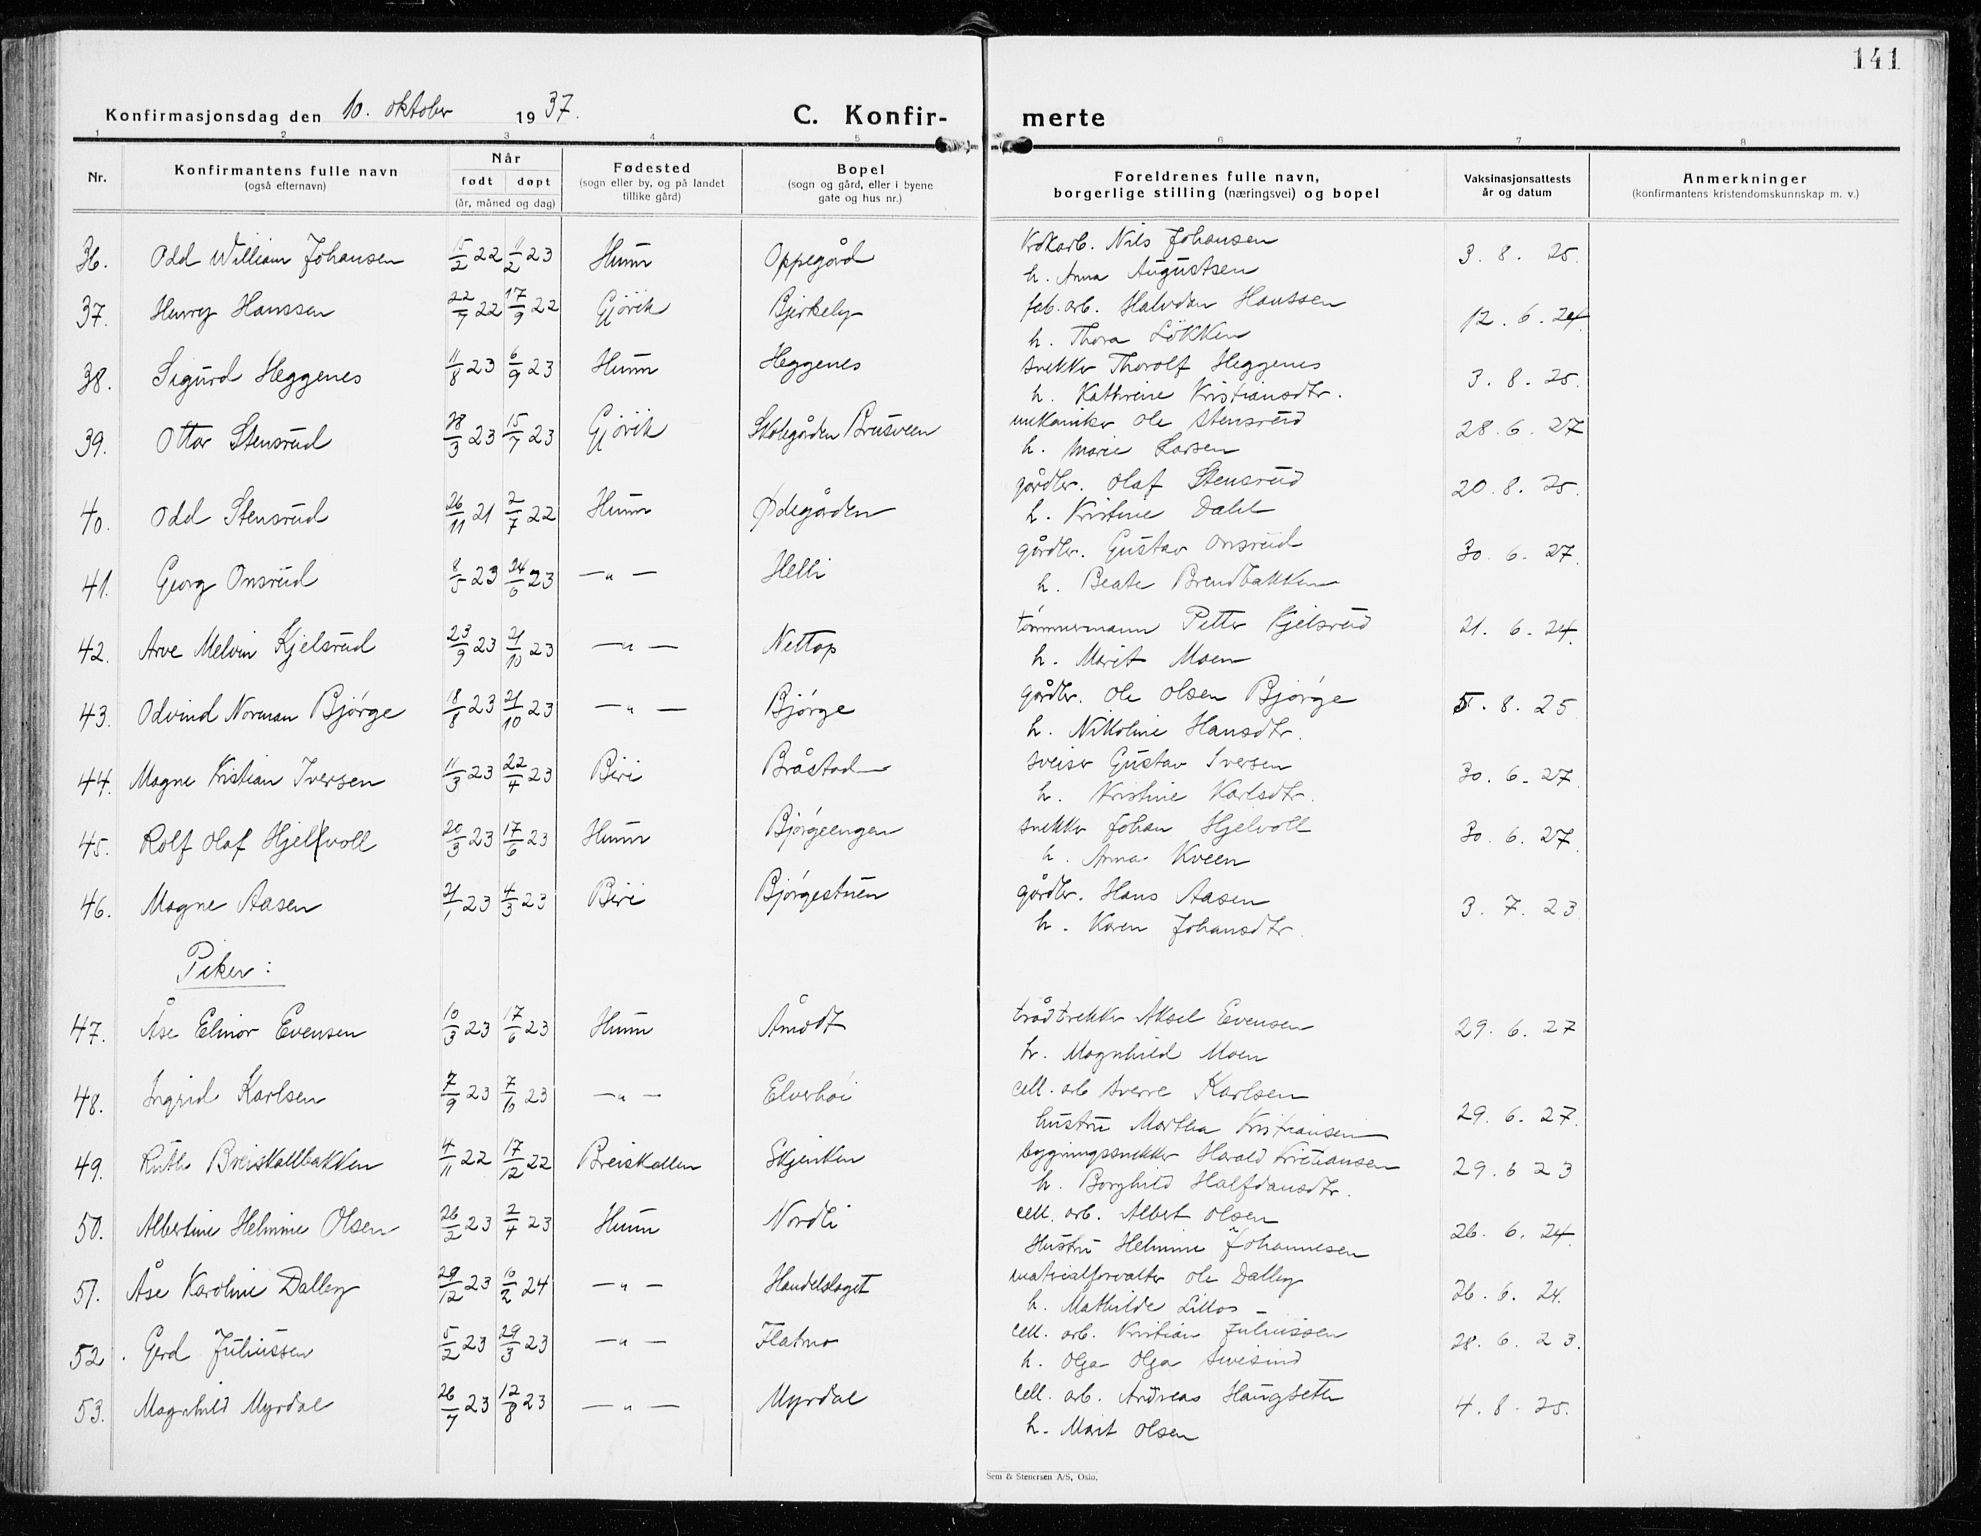 141
Konfirmasjonsdag den 10. oktober 1937.
C. Konfirmerte
1 2 3 4 5 6 7 8
Nr.
Konfirmantens fulle navn
(også efternavn)
Når
født døpt
(år, måned og dag)
Fødested
(sogn eller by, og på landet
tillike gård)
Bopel
(sogn og gård, eller i byene
gate og hus nr.)
Foreldrenes fulle navn,
borgerlige stilling (næringsvei) og bopel
Vaksinasjonsattests
år og datum
Anmerkninger
(konfirmantens kristendomskunnskap m. v.)
36. Odd William Johansen 15/2 22 11/2 23 Hunn Oppegård Nils Johansen 3. 8. 25.
h. Anna Augustsen
37. Henry Hanssen 22/7 22 17/9 22 Gjövik Bjerkely fab. arb. Halvdan Hanssen 12. 6. 24.
h. Thora Lökken
38. Sigurd Heggenes 11/8 23 6/9 23 Hunn Heggenes snekker Thorolf Heggenes 3. 8. 25.
h. Kathrine Kristiansdtr.
39. Ottar Stensrud 28/3 23 15/7 23 Gjövik Skolegården Brusveen mekaniker Ole Stensrud 28. 6. 27
h. Marie Larsen
40. Odd Stensrud 26/11 21 2/7 22 Hunn Ødegården gårdbr. Olaf Stensrud 20. 8. 25.
h. Kristine Dahl
41. Georg Onsrud 8/5 23 24/6 23 — „ — Helli gårdbr. Gustav Onsrud 30. 6. 27.
h. Beate Brendbakken
42. Arve Melvin Kjelsrud 23/9 23 21/10 23 — „ — Nettop tømmermann Petter Kjelsrud 21. 6. 24.
h. Marit Moen
43. Odvind Norman Bjørge 18/8 23 21/10 23 — „ — Bjørge gårdbr. Ole Olsen Bjørge 5. 8. 25
h. Nikoline Hansdtr.
44. Magne Kristian Iversen 11/3 23 22/4 23 Biri Bråstad sveiser Gustav Iversen 30. 6. 27.
h. Kristine Karlsdtr.
45. Rolf Olaf Hjelvoll 20/3 23 17/6 23 Hunn Bjørgeengen snekker Johan Hjelvoll 30. 6. 27.
h. Anna Kveen
46. Magne Aasen 21/1 23 4/3 23 Biri Bjørgestuen gårdbr. Hans Aasen 3. 7. 23
h. Karen Johansdtr.
Piker:
47. Åse Elinor Evensen 10/3 23 17/6 23 Hunn Åmodt trådtrekker Aksel Evensen 29. 6. 27
h. Magnhild Moen
48. Ingrid Karlsen 7/9 23 7/10 23 — „ — Elverhöi cell. arb Sverre Karlsen 29. 6. 27.
hustru Martha Kristiansen
49. Ruth Breiskallbakken 4/11 22 17/12 22 Breiskallen Skjenken bygningssnekker Harald Kristiansen 29. 6 23
h. Borghild Halfdansdtr.
50. Albertine Helmine Olsen 26/2 23 2/4 23 Hunn Nordli cell. arb. Albert Olsen 26. 6. 24.
Hustru Helmine Johannesen
51. Åse Karoline Dalby 29/12 23 10/2 24 — „ — Handelslaget materialforvalter Ole Dalby 26. 6. 24.
h. Mathilde Lillos
52. Gerd Juliussen 5/2 23 29/3 23 — „ — Flatmo cell. arb. Kristian Juliussen 28. 6. 23.
h. Olga Olga
53. Magnhild Myrdal 26/7 23 12/8 23 — „ — Myrdal cell. arb. Andreas Haugseth 4. 8. 25.
h. Marit Olsen
Sem & Stenersen A/S, Oslo.